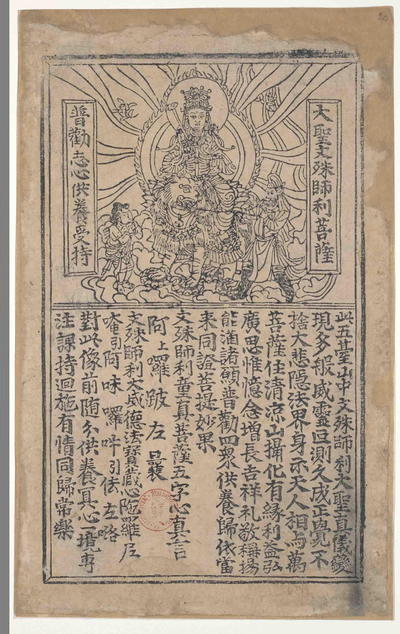 大聖文殊師利菩薩
普勸志心供養受持
此五臺山中文殊師利大聖真儀變
現多般威靈叵測久成正覺不
捨大悲隱法界身示天人相与萬
菩薩住清涼山攝化有緣利益弘
廣思惟憶念增長吉祥礼敬稱揚
能滿諸願普勸四衆供養歸依當
来同證菩提妙果
文殊師利童真菩薩五字心真言
阿上囉跛左曩
文殊師利大威德法寶藏心陁羅尼
唵引阿味囉吽引佉左咯
對此像前隨分供養冥心一境專
注課持迴施有情同歸常樂